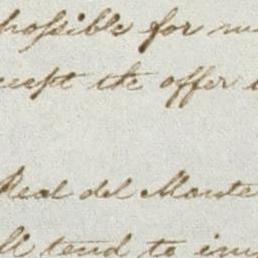 possible for
accept the offer
Real del Monte
tend to